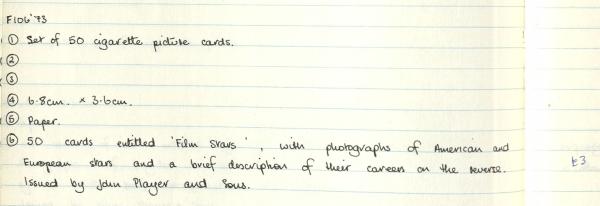 F106'73
① Set of 50 cigarette picture cards.
②
③
④ 6.8cm. x 3.6cm.
⑤ Paper.
⑥ 50 cards entitled 'Film Stars', with photographs of American and
European stars and a brief description of their careers on the reverse.
Issued by John Player and Sons.
£3